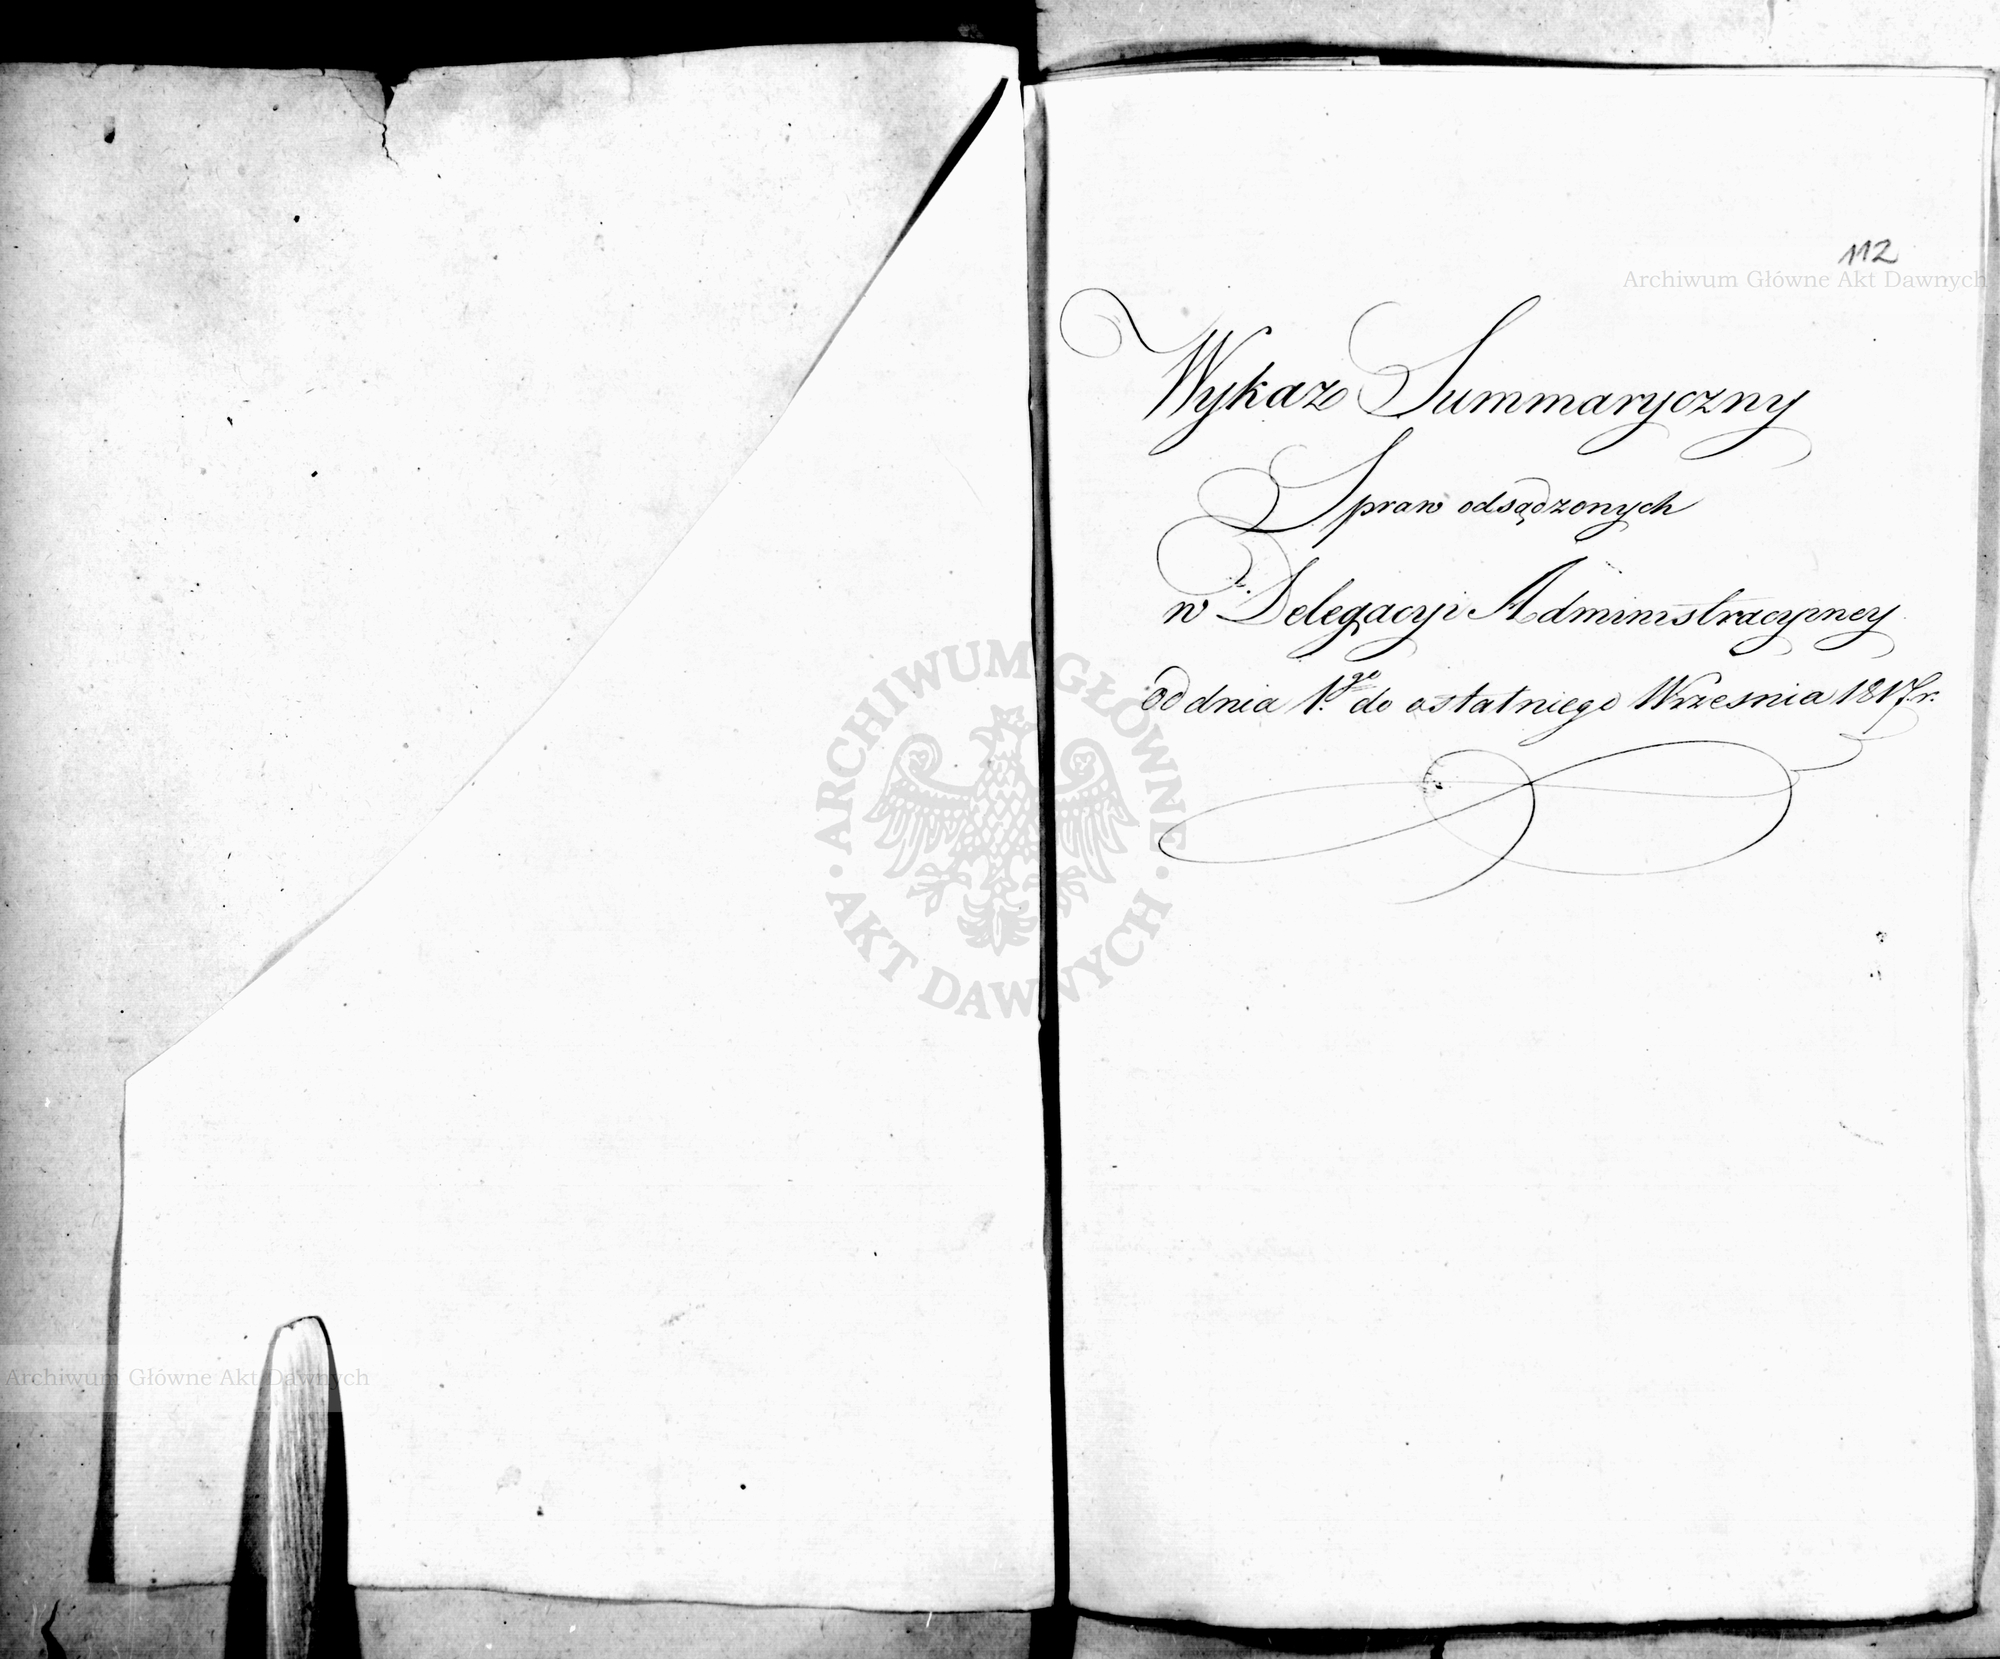 112
Archiwum Główne Akt Dawnych
Wykaz Summaryczny
Spraw odsądzonych
w Delegacyi Administracyiney
od dnia 1.go do ostatniego Wrzesnia 1817. r.
ARCHIWUM GŁÓWNE
AKT DAWNYCH
Archiwum Główne Akt Dawnych